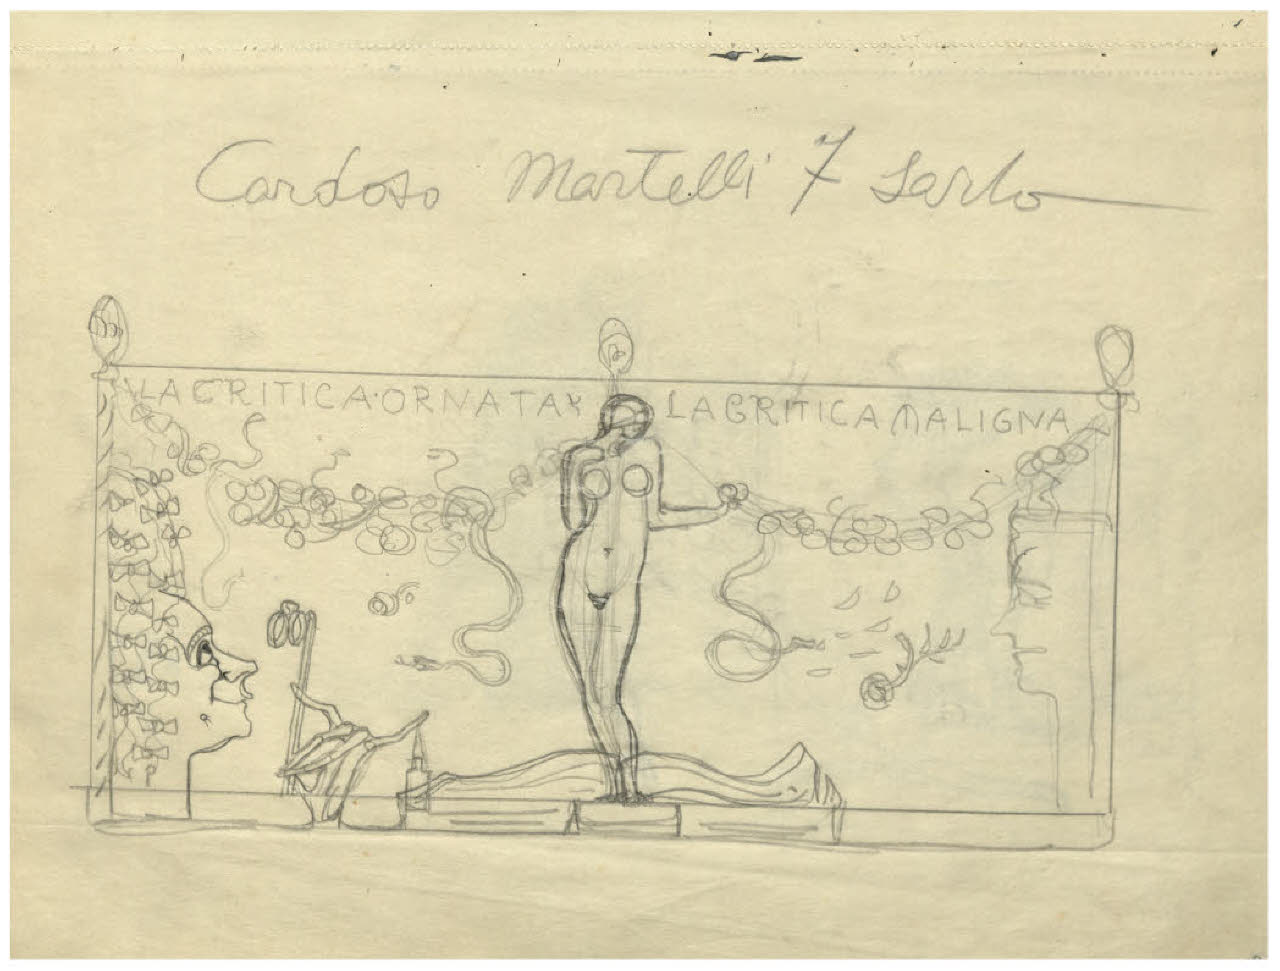 Cardoso Martelli 7 Sarlo
LA CRITICA·ORNATA Y LA CRITICA MALIGNA